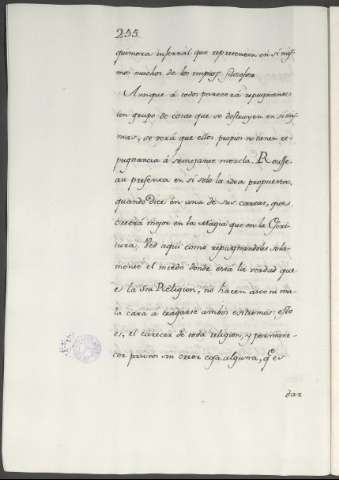 255
quimera infernal que representan en si mis-
mos muchos de los impios filosofos.
Aunque á todos parecerá repugnante
un grupo de cosas que se destruyen en si mis-
mas, se verá que ellos propios no tienen re-
pugnancia á semejante mezcla. Rousse-
au presenta en si solo la idea propuesta,
quando dice en una de sus cartas, que
creerá mejor en la magia que en la Escri-
tura. Ved aqui como repugnandoles sola-
mente el medio donde está la verdad que
es la Sta Religion, no hacen asco ni ma-
la cara á tragarse ambos extremos; esto
es, el carecer de toda religion, y permane-
cer para no creer cosa alguna, q.e es
dar